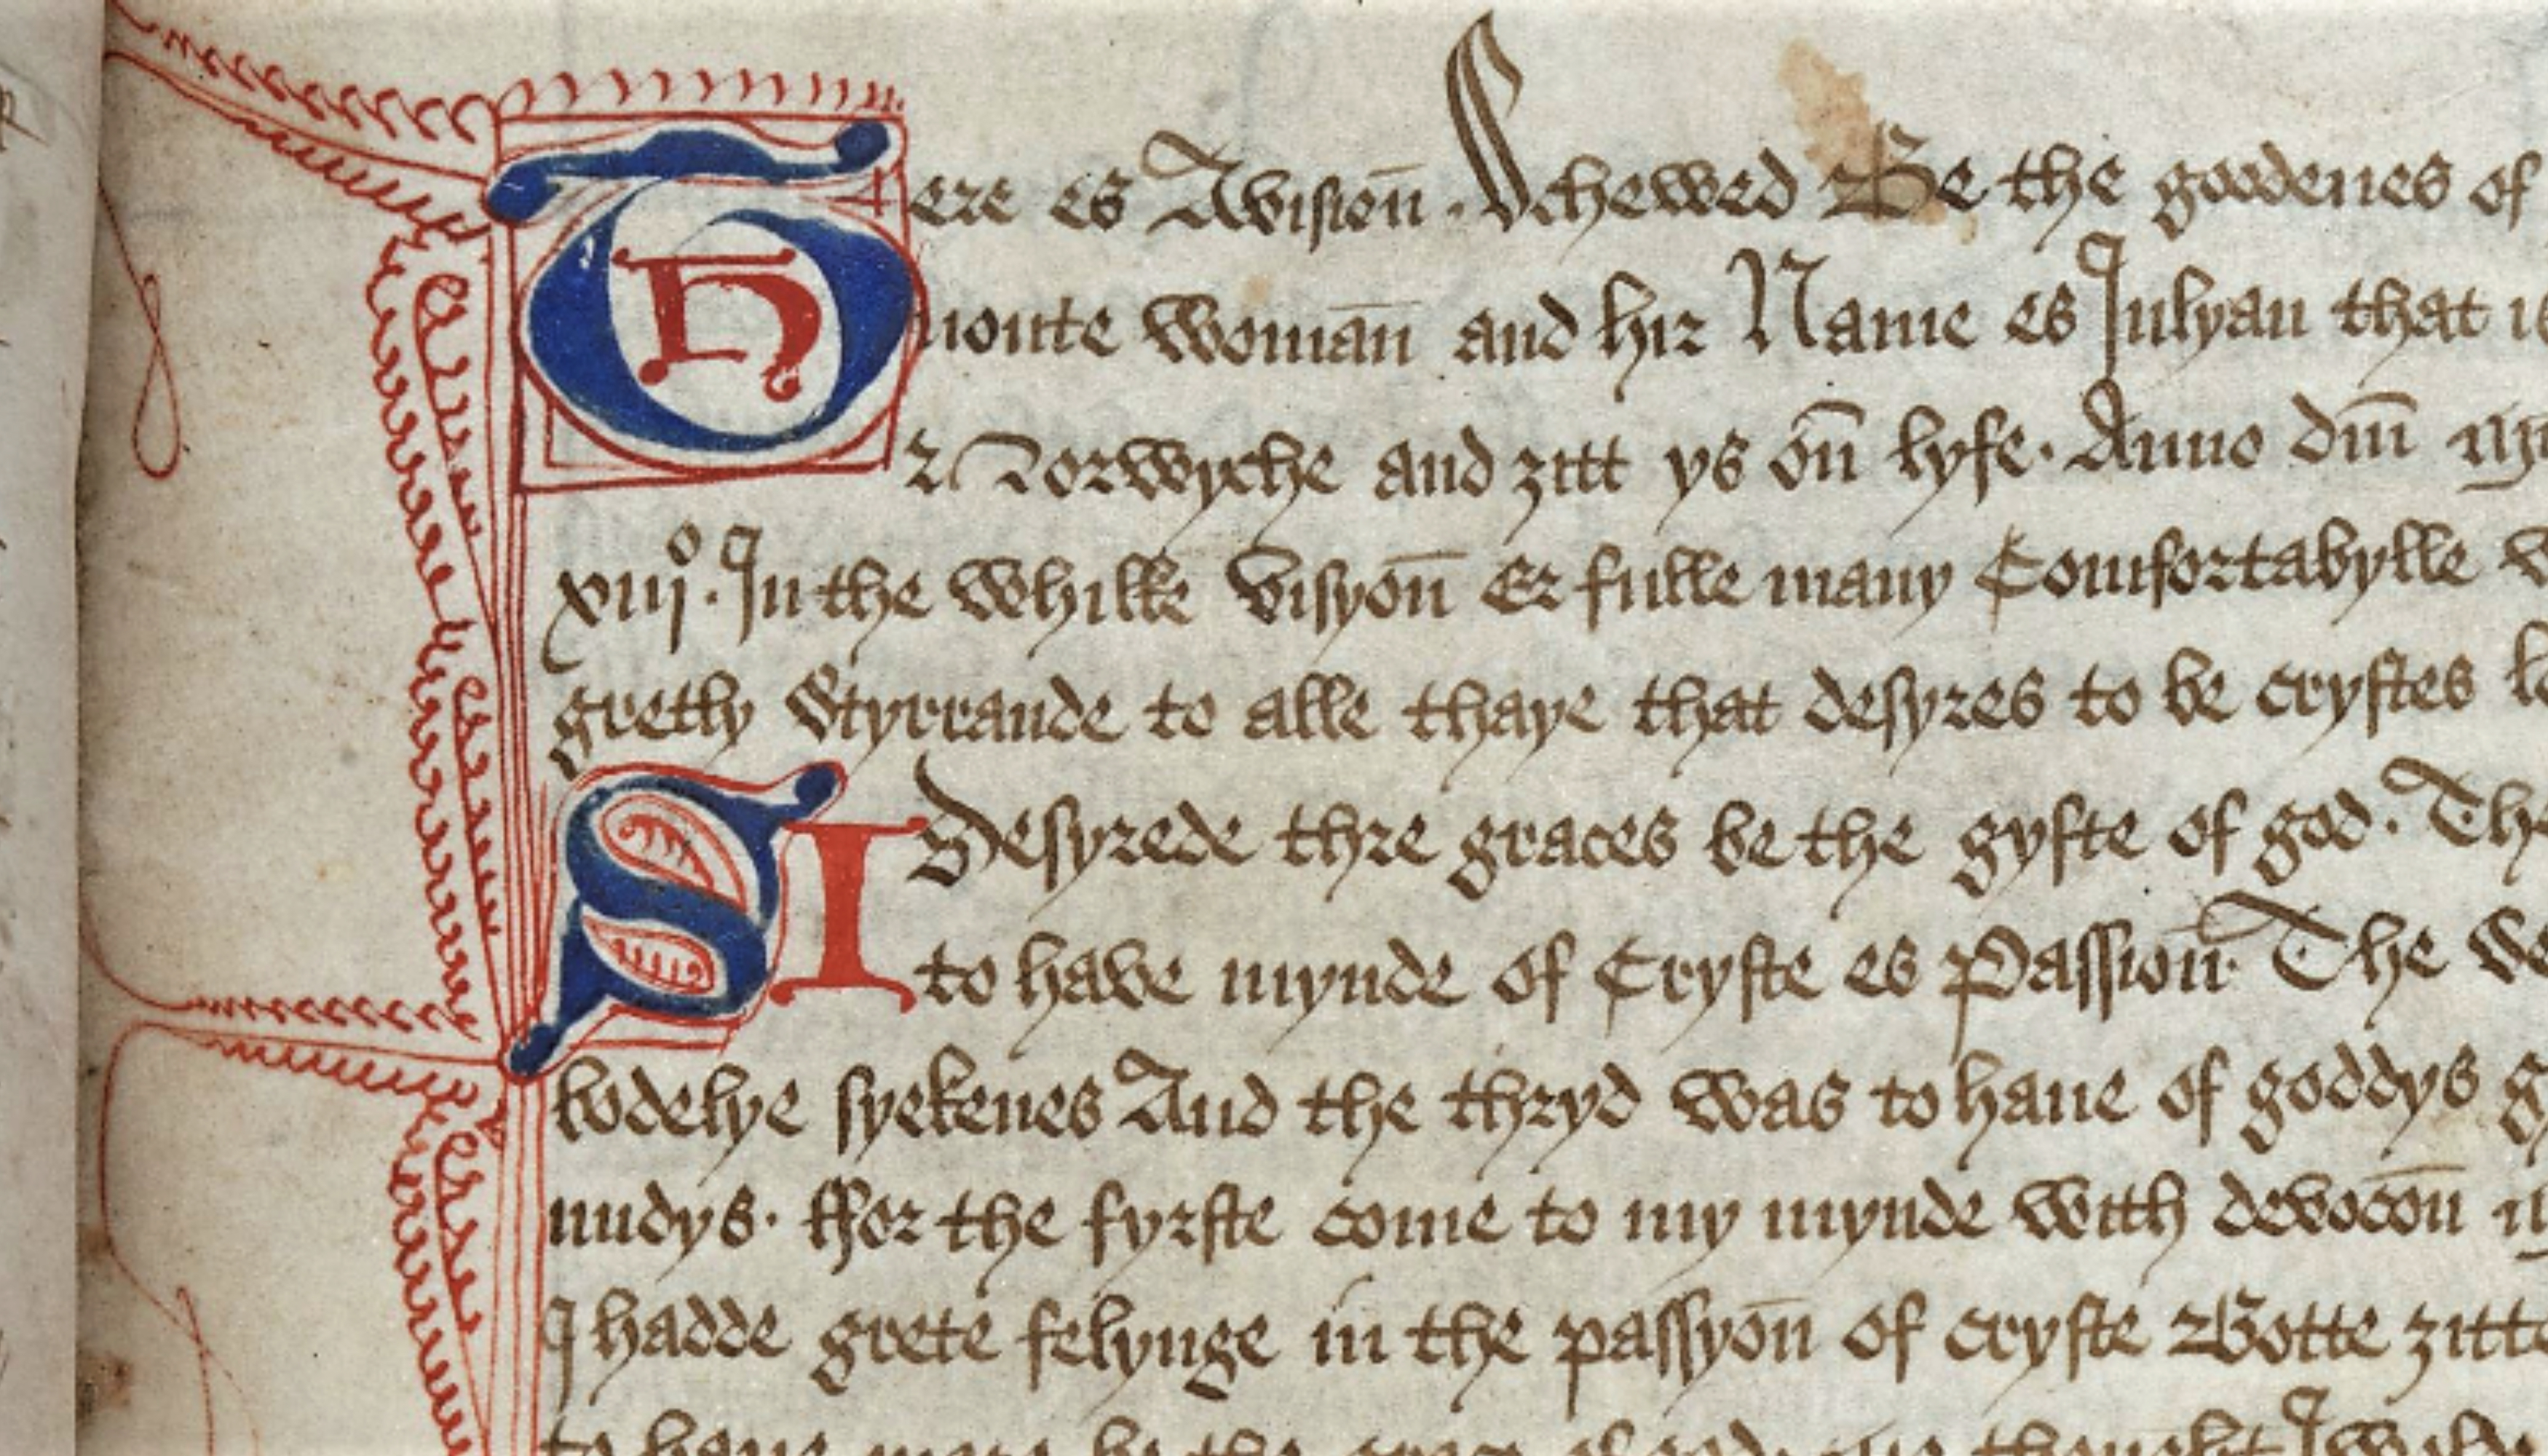 There es Avisioū. Schewed Be the goodenes of
uoute womāū and hir Name es Julyan that
Norwyche and ȝitt ys oū lyfe. Anno dm̄
xiijº. In the whilke visyoū Er fulle many Comfortabylle
gretly Styrrande to alle thaye that desyres to be crystes
I Desyrede thre graces be the gyfte of god. Th
to have mynde of Cryste es Passioū. The
bodelye syekenes And the thryd was to haue of goddys
nndys. Ffor the fyrste come to my mynde with devocōū
I hadde grete felynge in the passyoū of cryste Botte ȝitte